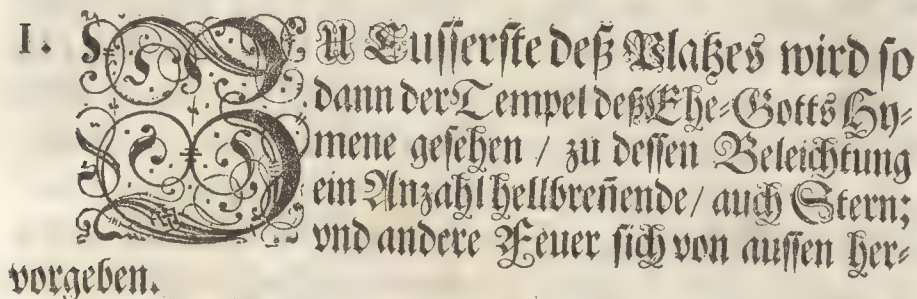 I. ZU Eusserste deß Platzes wird so
dann der Tempel deß Ehe-Gotts Hy-
mene gesehen / zu dessen Beleichtung
ein Anzahl hellbreñende / auch Stern;
vnd andere Feuer sich von aussen her-
vorgeben.